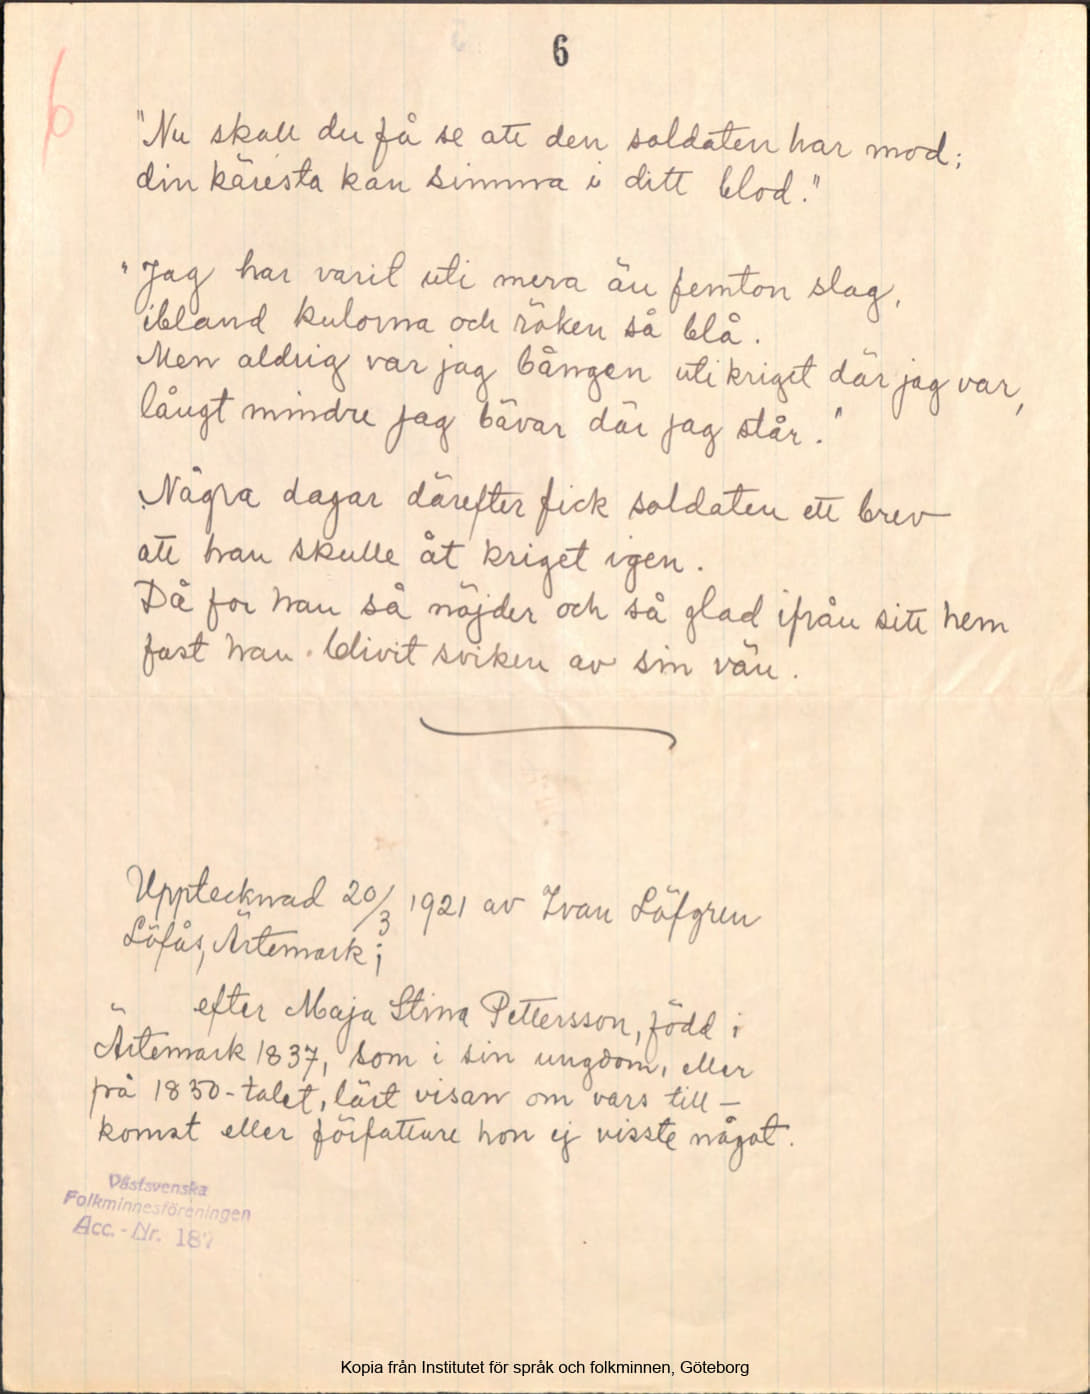 6
6
"Nu skall du få se att den soldaten har mod;
din käresta kan simma i ditt blod."
"Jag har varit uti mera än femton slag,
ibland kulorna och röken så blå.
Men aldrig var jag bången uti kriget där jag var,
långt mindre jag bävar där jag står."
Några dagar därefter fick soldaten ett brev
att han skulle åt kriget igen.
Då for han så nöjder och så glad ifrån sitt hem
fast han blivit sviken av sin vän.
Upptecknad 20/3 1921 av Ivan Löfgren
Löfås, Ärtemark;
efter Maja Stina Pettersson, född i
Ärtemark 1837, som i sin ungdom, eller
på 1850-talet, lärt visan om vars till-
komst eller författare hon ej visste något.
Västsvenska
Folkminnesföreningen
Acc.-Nr. 187
Kopia från Institutet för språk och folkminnen, Göteborg